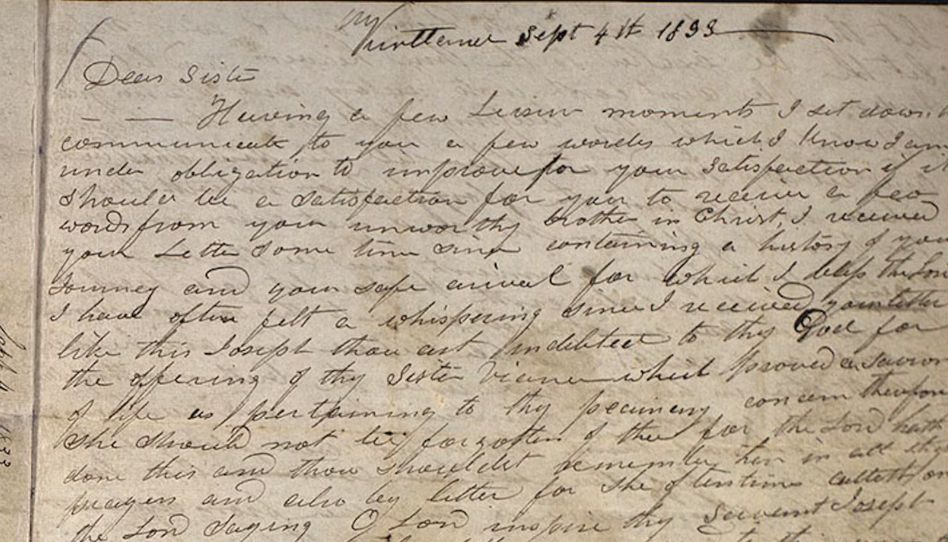 Kirtland Sept 4th 1833
Dear Sister
Having a few Leisure moments I set down to
communicate to you a few words which I know I am
under obligation to improve for your Satisfaction if it
should be a Satisfaction for you to receive a few
words from your unworthy brother in Christ I received
your Letter Some time Since containing a history of your
Journey and your safe arrival for which I bless the Lord
I have often felt a whispering Since I received your letter
like this Joseph thou art indebted to thy God for
the offering of thy Sister Vienna which proved a Savior
of life as pertaining to thy pecuniary concern therefore
she should not be forgotten of thee for the Lord hath
done this and thou shouldst remember her in all thy
prayers and also by letter for she oftentimes calleth on
the Lord Saying O Lord inspire thy Servant Joseph